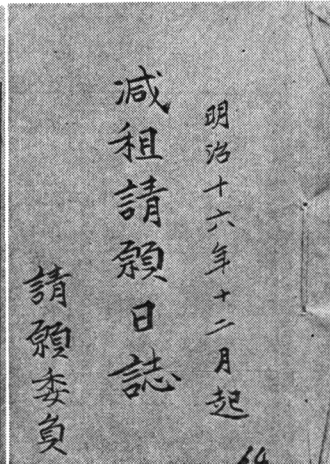 明治十六年十二月起
減租請願日誌
請願委員
64